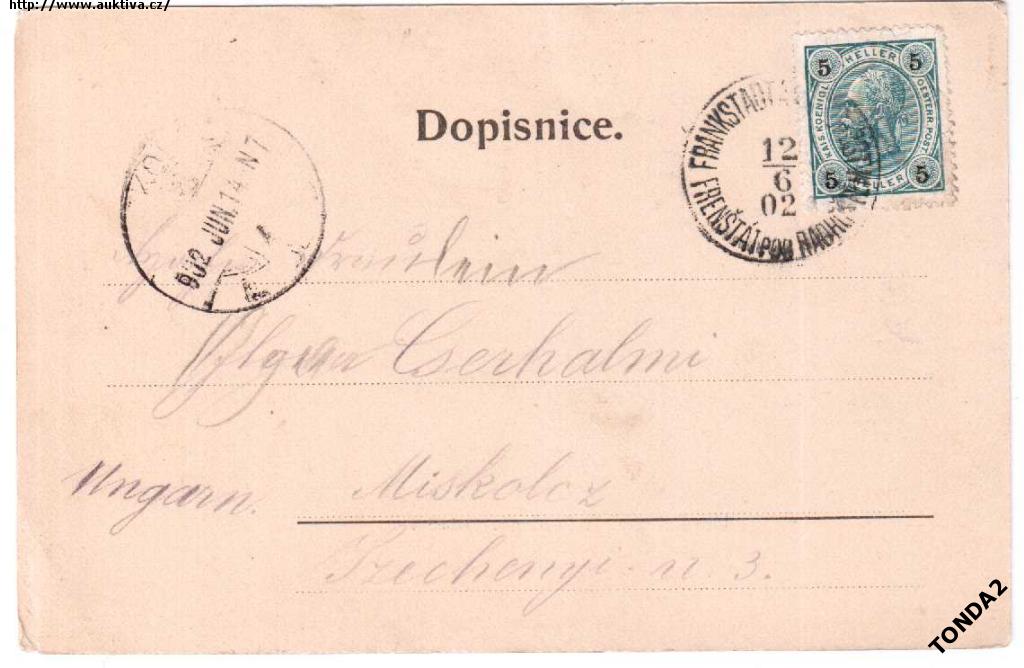 http://www.auktiva.cz/
Dopisnice.
5 HELLER 5
KAIS. KOENIGL. OESTERR. POST
5 HELLER 5
FRANKSTADT
12
6
02
FRENŠTÁT POD RADH
902 JUN. 14 N 7
Fräulein
Cserhalmi
Ungarn. Miskolcz
Szechenyi n 3.
TONDA2